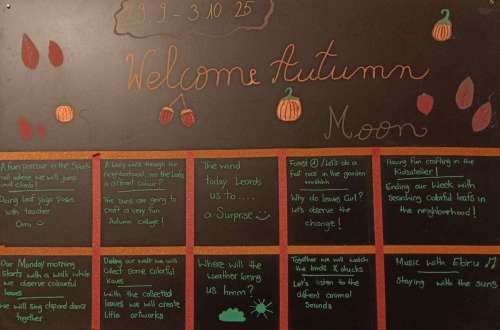 29 9 - 3 10 25
Welcome Autumn
Moon
A fun parcour in the
hall where we will jump
and climb!
Doing leaf yoga poses
with teacher
A walk through the
neighborhood, are the leafs
a different colour?
The suns are going to
craft a very fun
Autumn collage!
The wind
today Leards
us to ....
a Surprise
Forest /Let's do a
race in the garden
Why do leaves Curl?
Let's observe the
change!
Having fun crafting in the
Kidsatelier!
Ending our Week with
Searching Colorful leafs in
the neighborhood!
Our Monday morning
Starts with a walk while
we observe colourful
leaves
We will sing clap and dance
together
During our walk we will
collect some colorful
leaves
With the collected
leaves we will create
little artworks
Where will the
weather bring
us hmm?
Together we will watch
the birds & ducks
Let's listen to the
different animal
Sounds
Music with Ebru
Staying with the suns